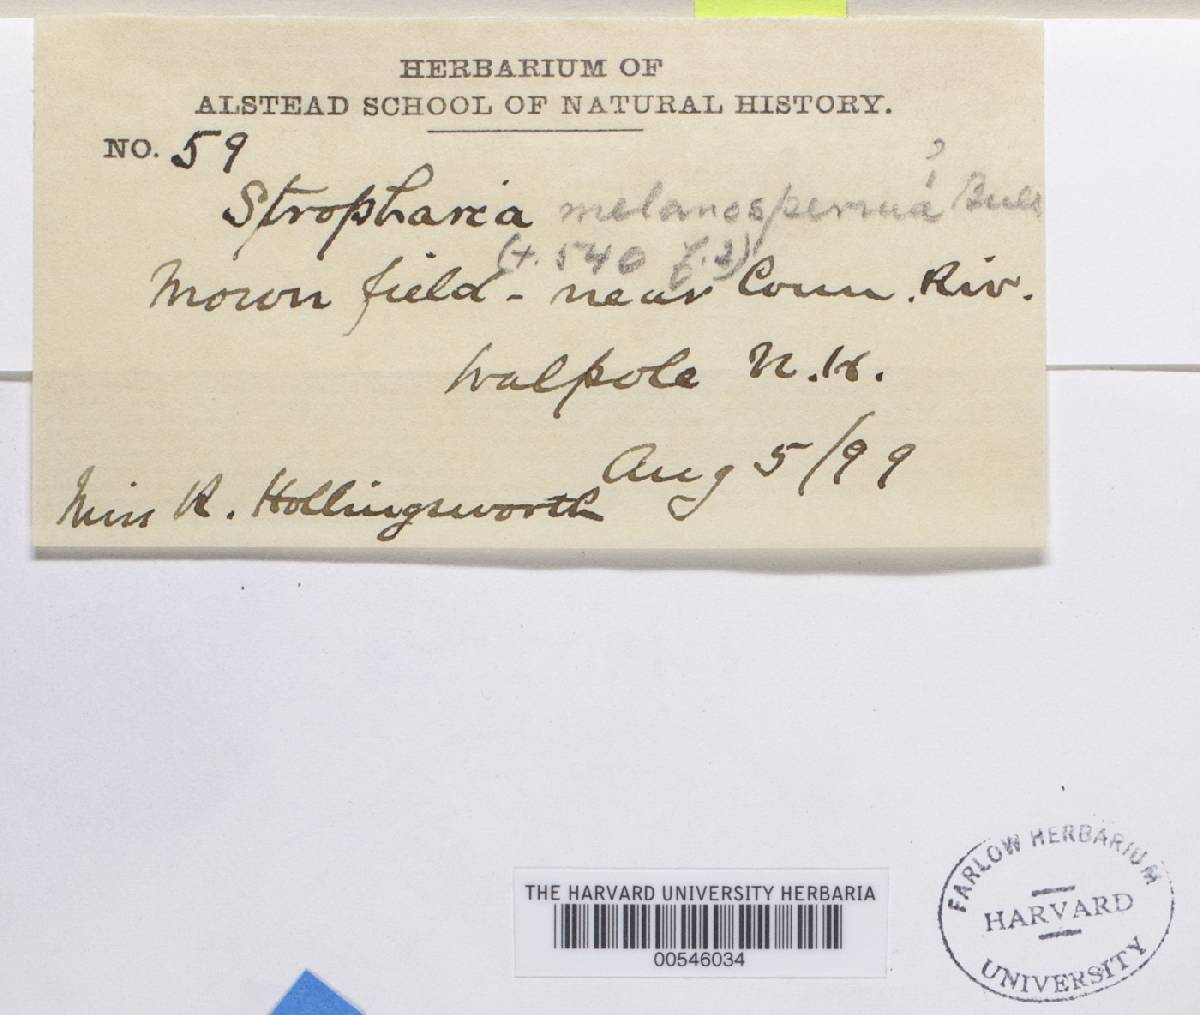 HERBARIUM OF
ALSTEAD SCHOOL OF NATURAL HISTORY.
NO. 59
Stropharia melanosperma ? Bull
(t. 540 f. 2)
Mown field - near Conn. Riv.
Walpole N.H.
Aug 5/99
Miss R. Hollingsworth
THE HARVARD UNIVERSITY HERBARIA
00546034
FARLOW HERBARIUM
HARVARD
UNIVERSITY